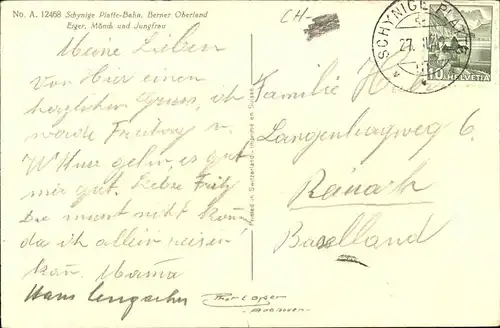 No. A. 12468 Schynige Platte-Bahn. Berner Oberland
Eiger, Mönch und Jungfrau
CH-
SCHYNIGE PLATTE
27.
10 HELVETIA
Meine Lieben
Von Hier einen
herzlichen Gruss, ich
werde Freitag n.
gehn, es geht
mir gut. Liebe Fritz
Du must nicht
da ich allein reisen
kan. Mama
Hans
Familie
Langenhagweg 6.
Reinach
Baselland
Printed in Switzerland - Imprimé en Suisse